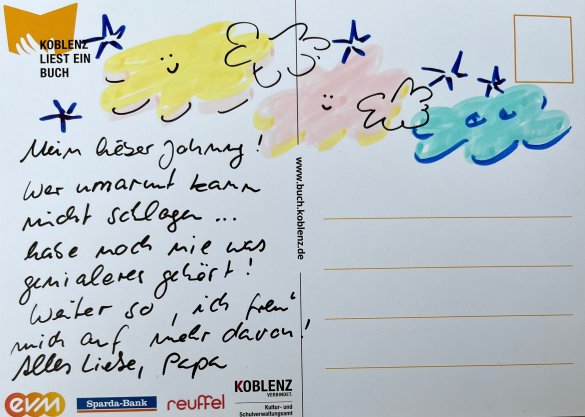 KOBLENZ
LIEST EIN
BUCH
Mein lieber Johnny!
Wer umarmt kann
nicht schlagen...
habe noch nie was
genialeres gehört!
Weiter so, ich freu'
mich auf mehr davon!
Alles Liebe, Papa
www.buch.koblenz.de
evm
Sparda-Bank
reuffel
KOBLENZ
VERBINDET.
Kultur- und
Schulverwaltungsamt